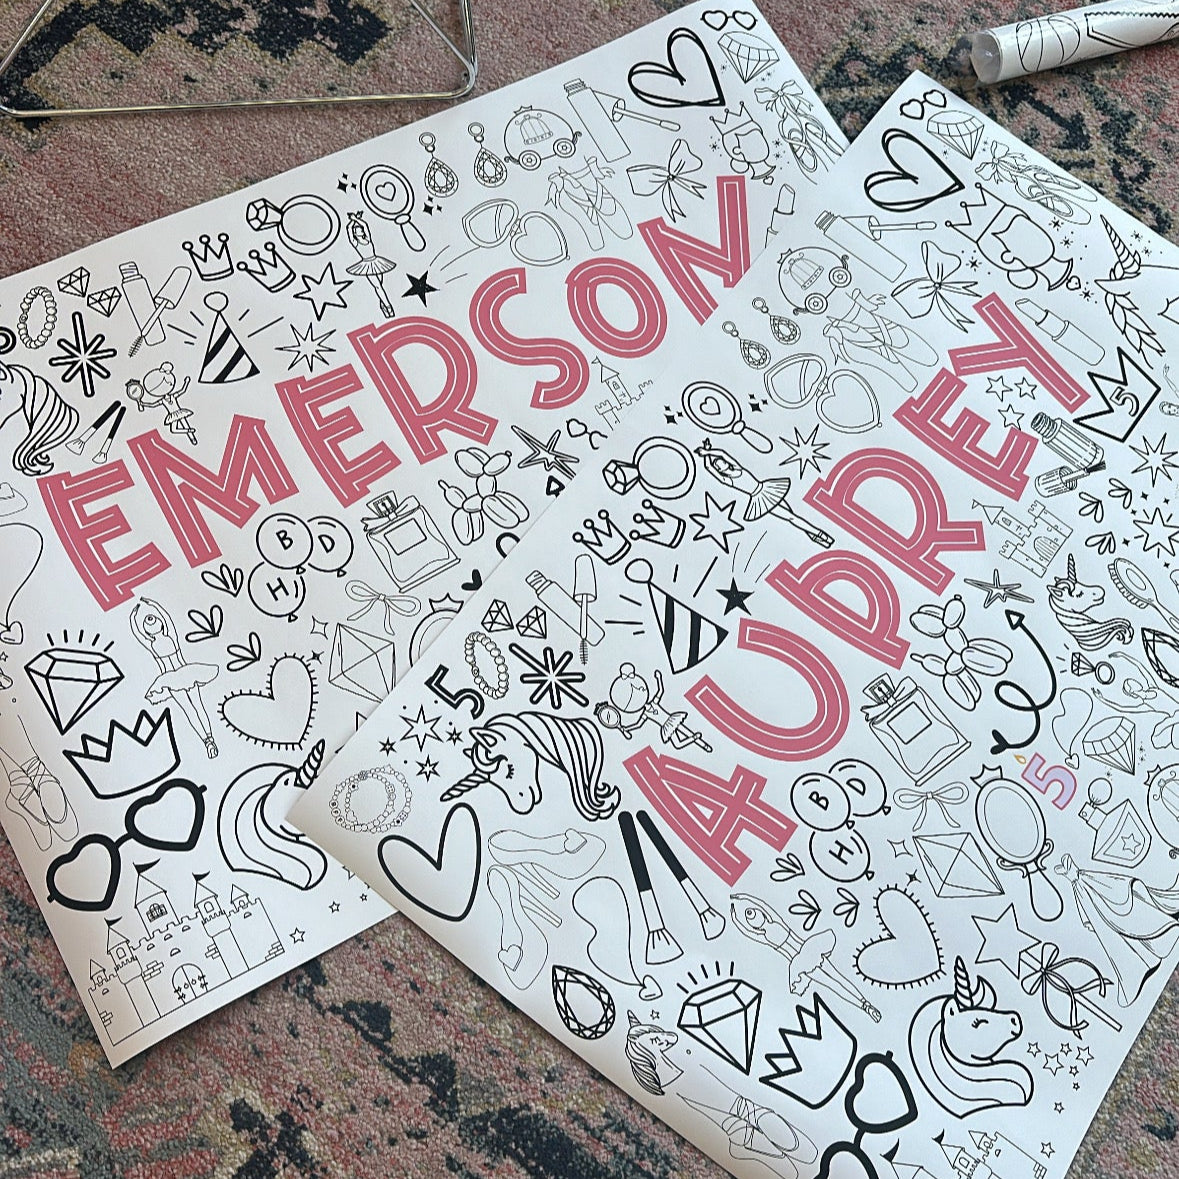 EMERSON
B
D
H
AUDREY
5
5
B
D
H
5